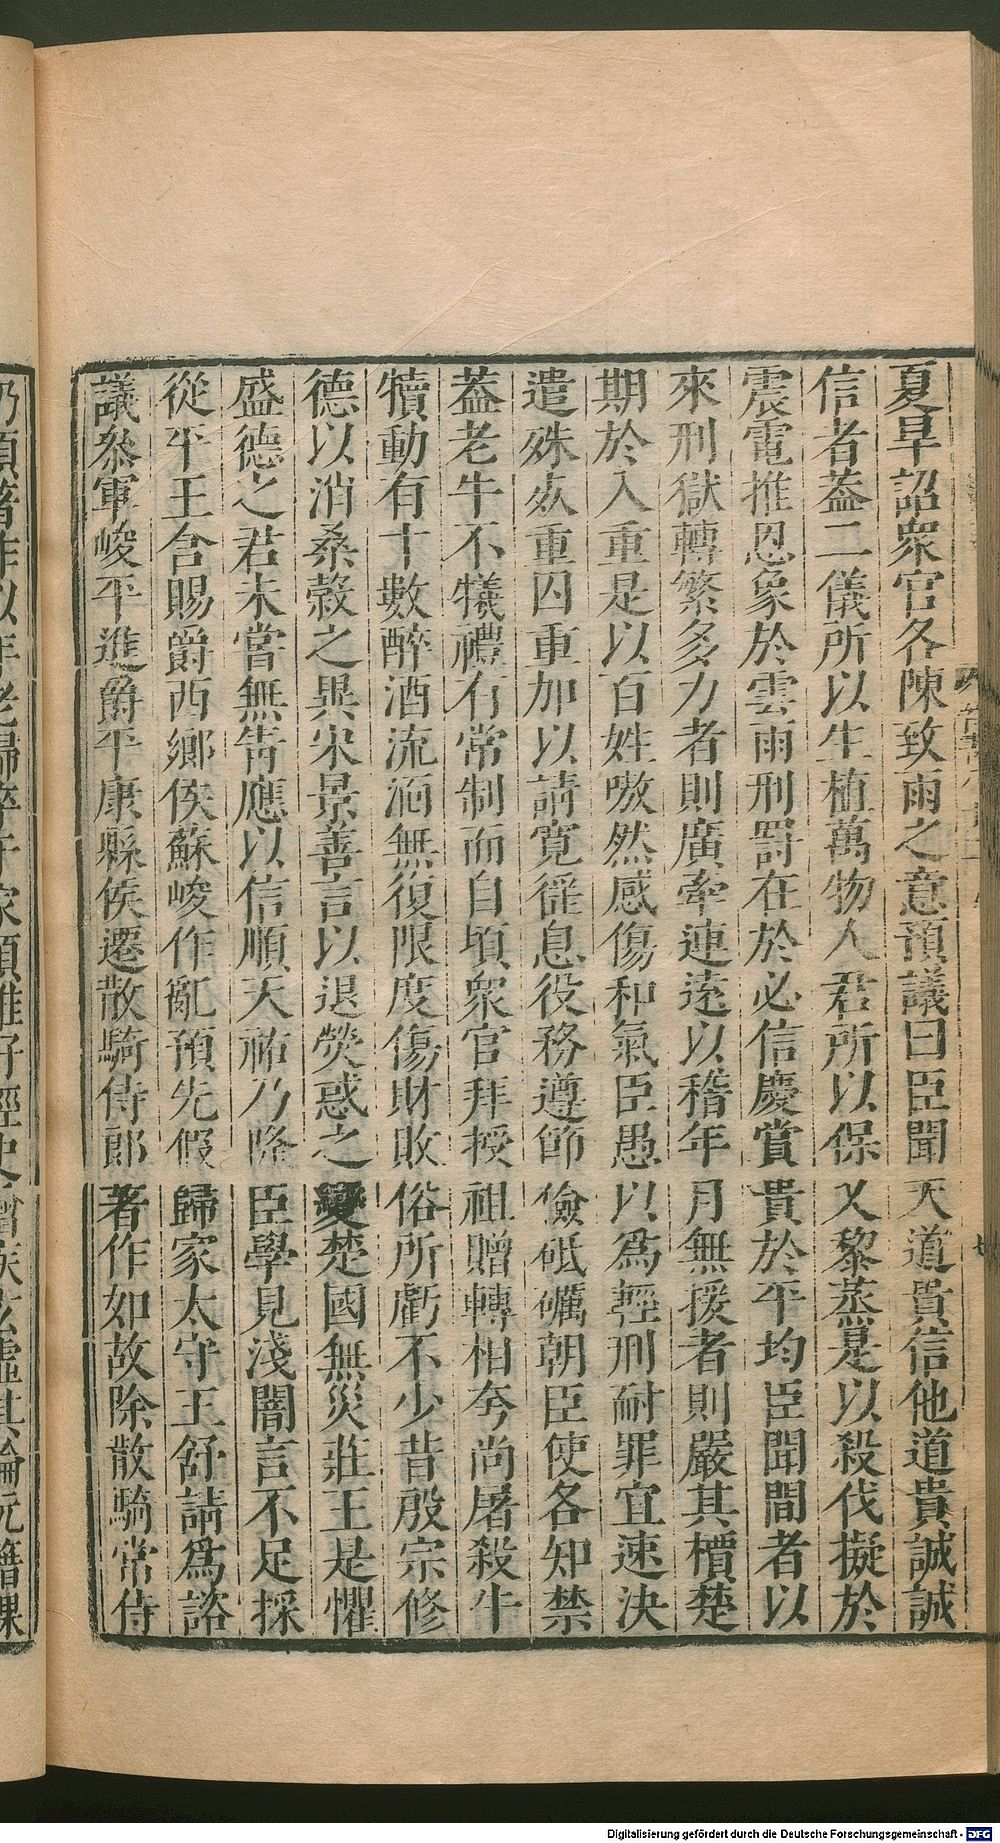 夏旱詔衆官各陳致雨之意預議曰臣聞天道貴信他道貴誠誠
信者葢二儀所以生植萬物人君所以保乂黎蒸是以殺伐擬於
震電推恩象於雲雨刑罰在於必信慶賞貴於平均臣聞間者以
來刑獄轉繁多力者則廣牽連逺以稽年月無援者則嚴其檟楚
期於入重是以百姓嗷然感傷和氣臣愚以爲輕刑耐罪宜速决
遣殊死重囚重加以請寬徭息役務遵節儉砥礪朝臣使各知禁
葢老牛不犧禮有常制而自頃衆官拜授祖贈轉相夸尚屠殺牛
犢動有十數醉酒流湎無復限度傷財敗俗所虧不少昔殷宗修
德以消桑榖之異宋景善言以退熒惑之變楚國無災莊王是懼
盛德之君未嘗無眚應以信順天祐乃隆臣學見淺闇言不足採
從平王含賜爵西鄉侯蘇峻作亂預先假歸家太守王舒請爲諮
議叅軍峻平進爵平康縣侯遷散騎侍郎著作如故除散騎常侍
Digitalisierung gefördert durch die Deutsche Forschungsgemeinschaft - DFG